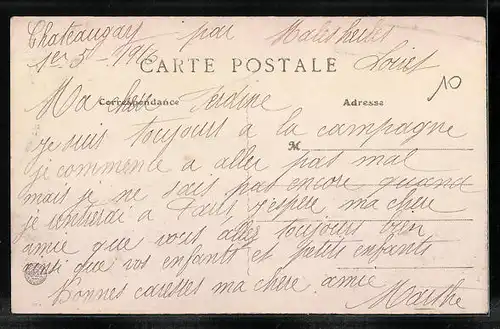 Chateaugay par Malesherbes
1er 5 - 1916 Loiret
CARTE POSTALE
10
Correspondance
Adresse
Ma chère
je suis toujours a la campagne
M
je commence a aller pas mal
mais je ne sais pas encore quand
je rentrerai a Paris j'espère ma chere
amie que vous allez toujours bien
ainsi que vos enfants et petits enfants
Bonnes caresses ma chere amie
Marthe